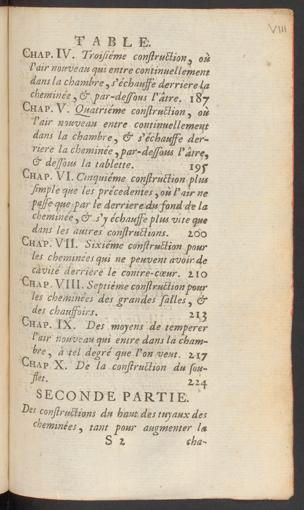 VIII
TABLE.
CHAP. IV. Troisiéme construction, où
l'air nouveau qui entre continuellement
dans la chambre, s'échauffe derriere la
cheminée, & par-dessous l'âtre. 187
CHAP. V. Quatriéme construction, où
l'air nouveau entre continuellement
dans la chambre, & s'échauffe der-
riere la cheminée, par-dessous l'âtre,
& dessous la tablette. 195
CHAP. VI. Cinquiéme construction plus
simple que les précedentes, où l'air ne
passe que par le derriere du fond de la
cheminée, & s'y échauffe plus vite que
dans les autres constructions. 200
CHAP. VII. Sixiéme construction pour
les cheminées qui ne peuvent avoir de
cavité derriere le contre-cœur. 210
CHAP. VIII. Septiéme construction pour
les cheminées des grandes salles, &
des chauffoirs. 213
CHAP. IX. Des moyens de temperer
l'air nouveau qui entre dans la cham-
bre, à tel degré que l'on veut. 217
CHAP X. De la construction du sou-
flet. 224
SECONDE PARTIE.
Des constructions du haut des tuyaux des
cheminées, tant pour augmenter la
S 2 cha-